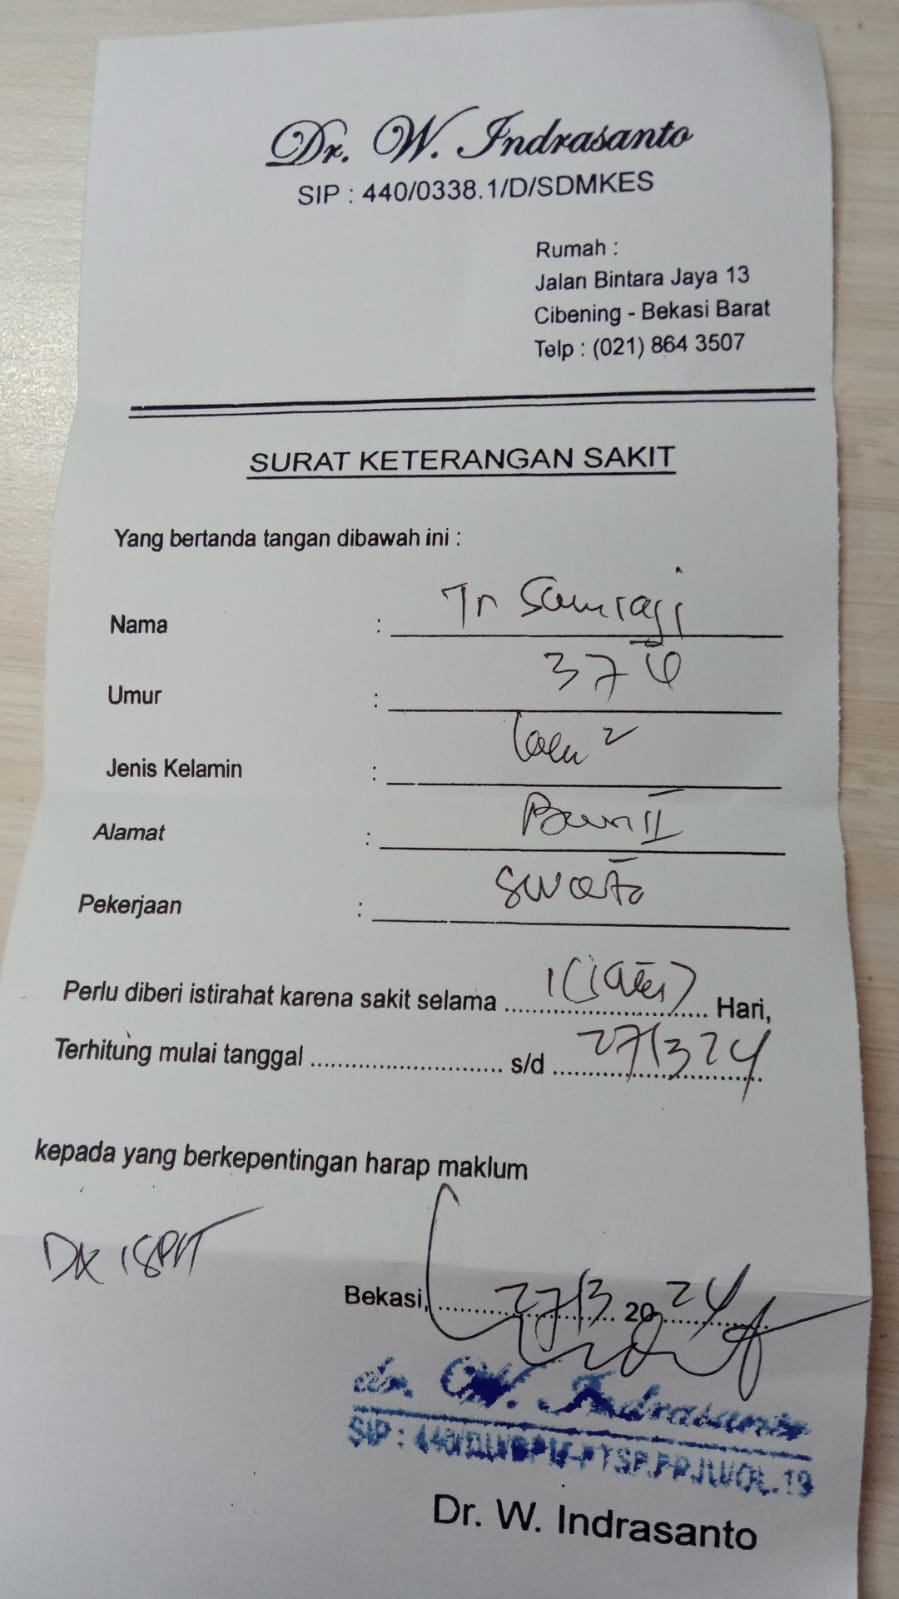 Dr. W. Indrasanto
SIP : 440/0338.1/D/SDMKES
Rumah :
Jalan Bintara Jaya 13
Cibening - Bekasi Barat
Telp : (021) 864 3507
SURAT KETERANGAN SAKIT
Yang bertanda tangan dibawah ini :
Nama : Tn
Umur : 37
Jenis Kelamin :
Alamat : II
Pekerjaan :
Perlu diberi istirahat karena sakit selama 1 (satu) Hari,
Terhitung mulai tanggal .......................... s/d 27/3 24
kepada yang berkepentingan harap maklum
Bekasi, 27/3 20 24
dr. W. Indrasanto
SIP :
Dr. W. Indrasanto